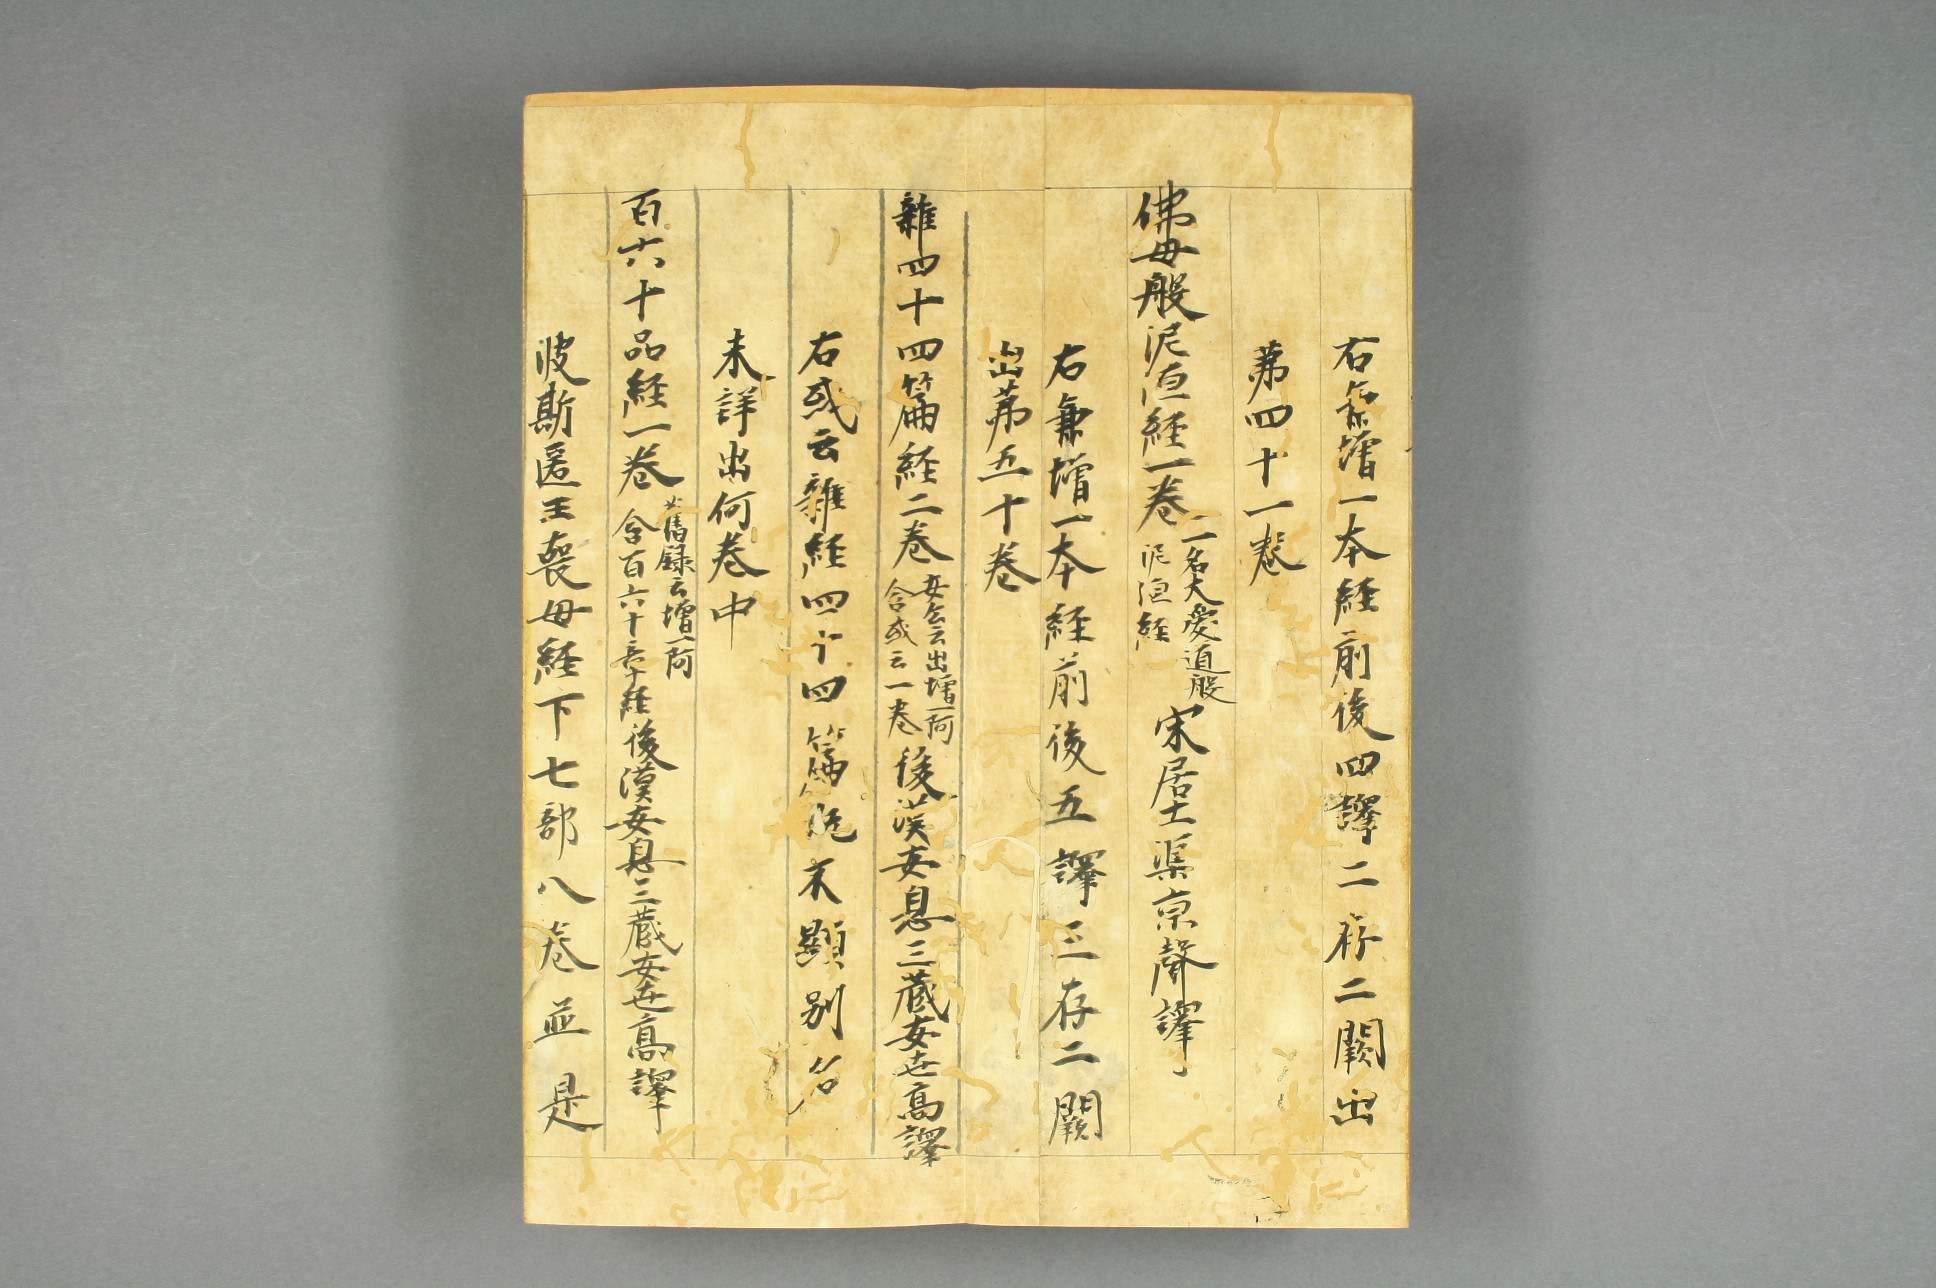 右兼增一本経前後四譯二存二闕出
第四十一卷
佛母般泥洹経一卷二名大愛道般泥洹経宋居士渠京聲譯
右兼增一本経前後五譯三存二闕
出第五十卷
雜四十四篇経二卷安公云出增一阿含或云一卷後漢安息三藏安世高譯
右或云雜経四十四篇既不顯別名
未詳出何卷中
百六十品経一卷舊録云增一阿含百六十章経後漢安息三藏安世高譯
波斯匿王喪母経下七部八卷並是